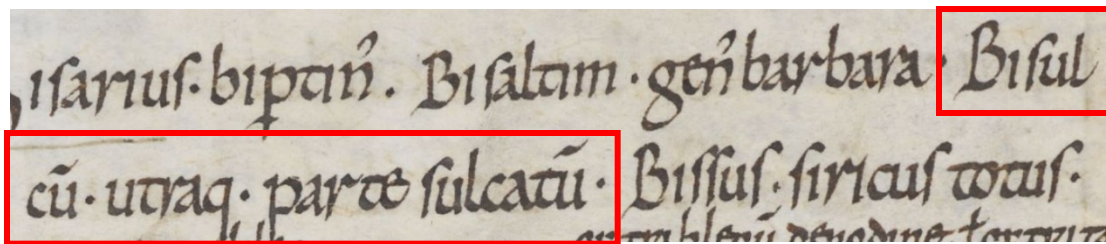 isarius· biptin̄. Bisaltim· gen̄ barbara· Bisul
cū· utraq· parte sulcatū· Bissus· siricus totus·